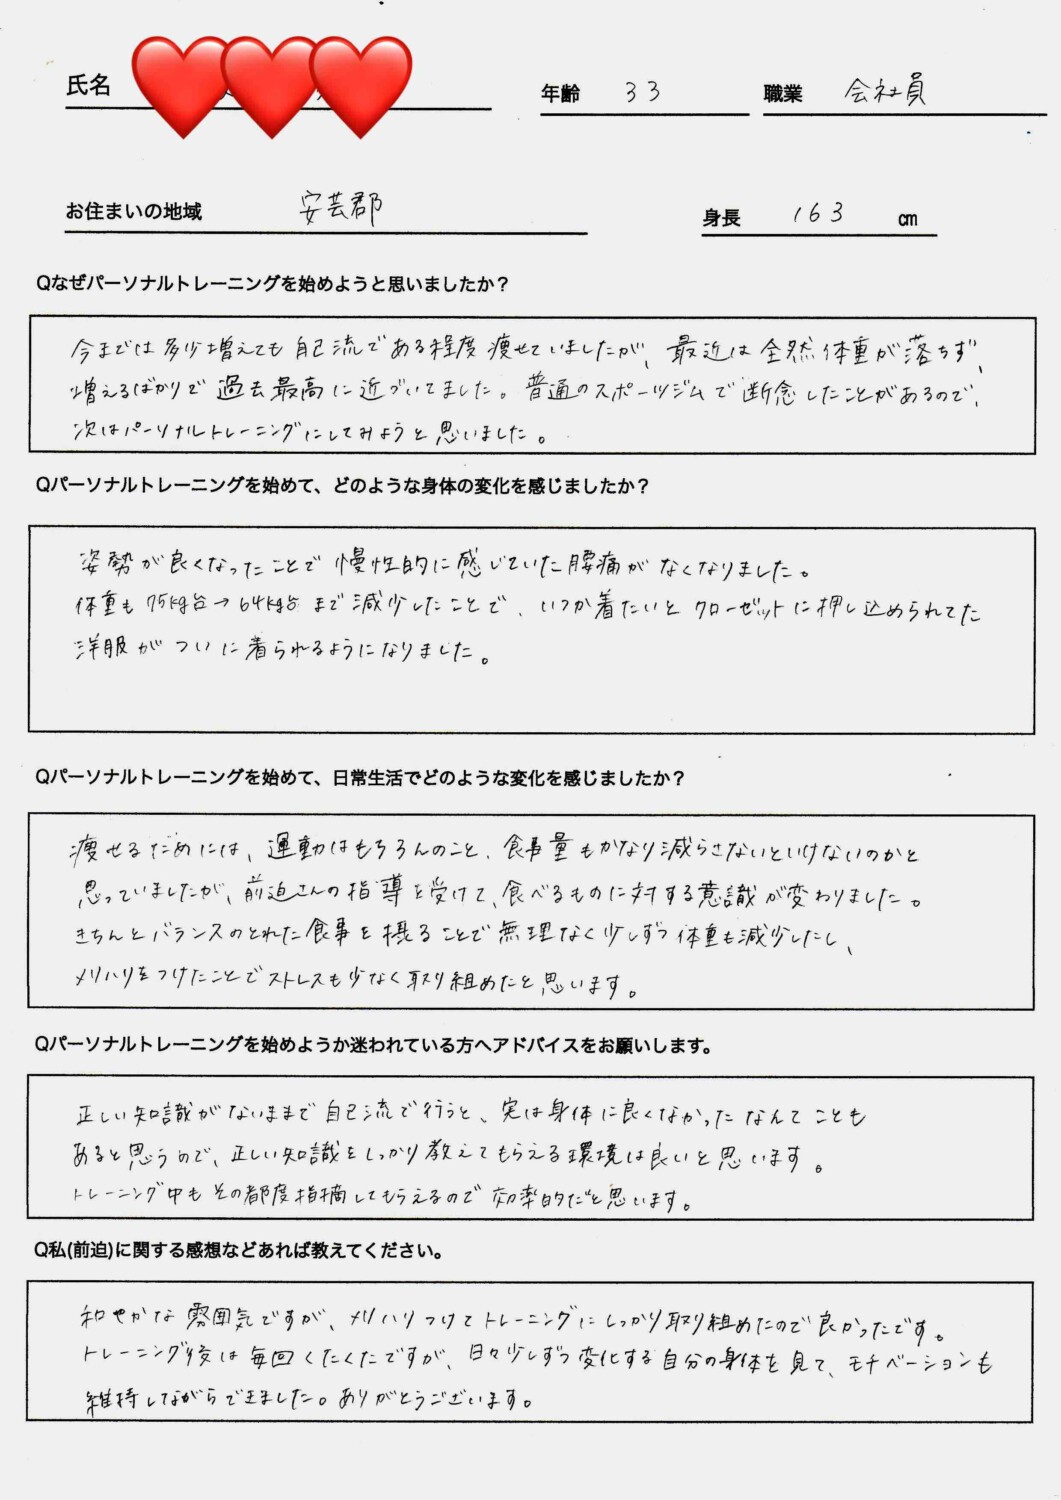 氏名
年齢 33 職業 会社員
お住まいの地域 安芸郡 身長 163 cm
Qなぜパーソナルトレーニングを始めようと思いましたか？
今までは多少増えても自己流である程度痩せていましたが、最近は全然体重が落ちず、
増えるばかりで過去最高に近づいてました。普通のスポーツジムで断念したことがあるので、
次はパーソナルトレーニングにしてみようと思いました。
Qパーソナルトレーニングを始めて、どのような身体の変化を感じましたか？
姿勢が良くなったことで慢性的に感じていた腰痛がなくなりました。
体重も75kg台→64kg台まで減少したことで、いつか着たいとクローゼットに押し込められてた
洋服がついに着られるようになりました。
Qパーソナルトレーニングを始めて、日常生活でどのような変化を感じましたか？
痩せるためには、運動はもちろんのこと、食事量もかなり減らさないといけないのかと
思っていましたが、前迫さんの指導を受けて、食べるものに対する意識が変わりました。
きちんとバランスのとれた食事を摂ることで無理なく少しずつ体重も減少したし、
メリハリをつけたことでストレスも少なく取り組めたと思います。
Qパーソナルトレーニングを始めようか迷われている方へアドバイスをお願いします。
正しい知識がないままで自己流で行うと、実は身体に良くなかったなんてことも
あると思うので、正しい知識をしっかり教えてもらえる環境は良いと思います。
トレーニング中もその都度指摘してもらえるので効率的だと思います。
Q私(前迫)に関する感想などあれば教えてください。
和やかな雰囲気ですが、メリハリつけてトレーニングにしっかり取り組めたので良かったです。
トレーニング後は毎回くたくたですが、日々少しずつ変化する自分の身体を見て、モチベーションも
維持しながらできました。ありがとうございます。